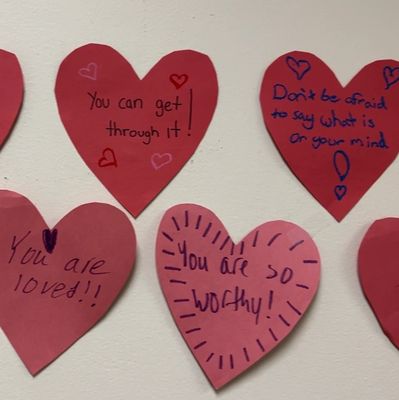 You can get
through it!
Don't be afraid
to say what is
on your mind
!
You are
loved!!
You are so
worthy!